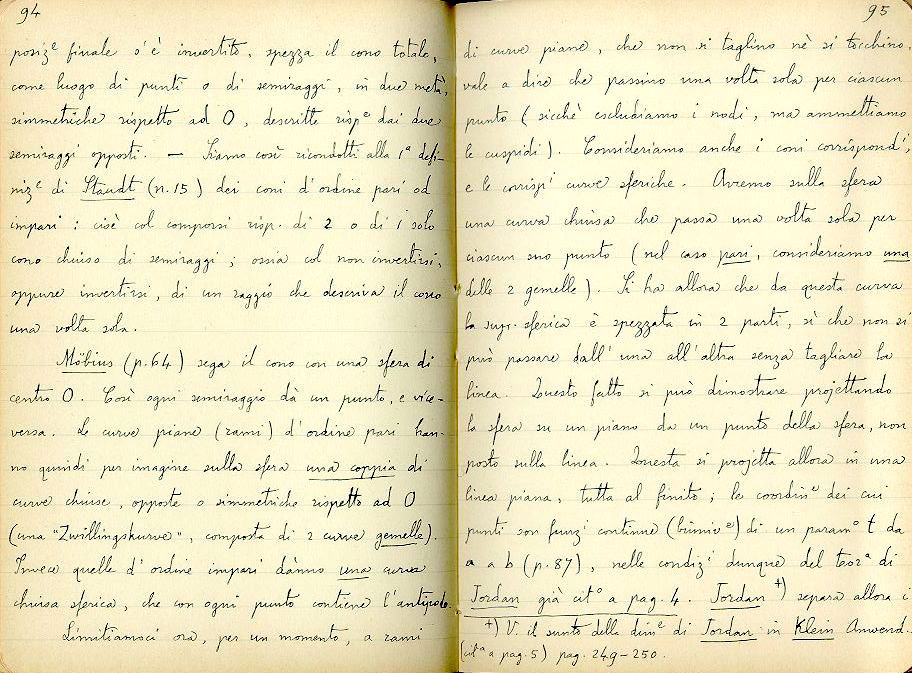 94
posiz^e finale s'è invertito, spezza il cono totale,
come luogo di punti o di semiraggi, in due metà,
simmetriche rispetto ad O, descritte risp^e dai due
semiraggi opposti. — Siamo così ricondotti alla 1ª defi-
niz^e di Staudt (n. 15) dei coni d'ordine pari od
impari: cioè col comporsi risp. di 2 o di 1 solo
cono chiuso di semiraggi; ossia col non invertirsi,
oppure invertirsi, di un raggio che descriva il cono
una volta sola.
Möbius (p. 64) sega il cono con una sfera di
centro O. Così ogni semiraggio dà un punto, e vice-
versa. Le curve piane (rami) d'ordine pari han-
no quindi per imagine sulla sfera una coppia di
curve chiuse, opposte o simmetriche rispetto ad O
(una "Zwillingskurve", composta di 2 curve gemelle).
Invece quelle d'ordine impari dànno una curva
chiusa sferica, che con ogni punto contiene l'antipodo.
Limitiamoci ora, per un momento, a rami
95
di curve piane, che non si taglino nè si tocchino,
vale a dire che passino una volta sola per ciascun
punto (sicchè escludiamo i nodi, ma ammettiamo
le cuspidi). Consideriamo anche i coni corrispond^i,
e le corrisp^i curve sferiche. Avremo sulla sfera
una curva chiusa che passa una volta sola per
ciascun suo punto (nel caso pari, consideriamo una
delle 2 gemelle). Si ha allora che da questa curva
la sup. sferica è spezzata in 2 parti, sì che non si
può passare dall'una all'altra senza tagliare la
linea. Questo fatto si può dimostrare projettando
la sfera su un piano da un punto della sfera, non
posto sulla linea. Questa si projetta allora in una
linea piana, tutta al finito; le coordin^e dei cui
punti son funz^i continue (biuniv^e) di un param^o t da
a a b (p. 87), nelle condiz^i dunque del teor^a di
Jordan già cit^o a pag. 4. Jordan +) separa allora i
+) V. il sunto della dim^e di Jordan in Klein Anwend..
(cit^a a pag. 5) pag. 249-250.